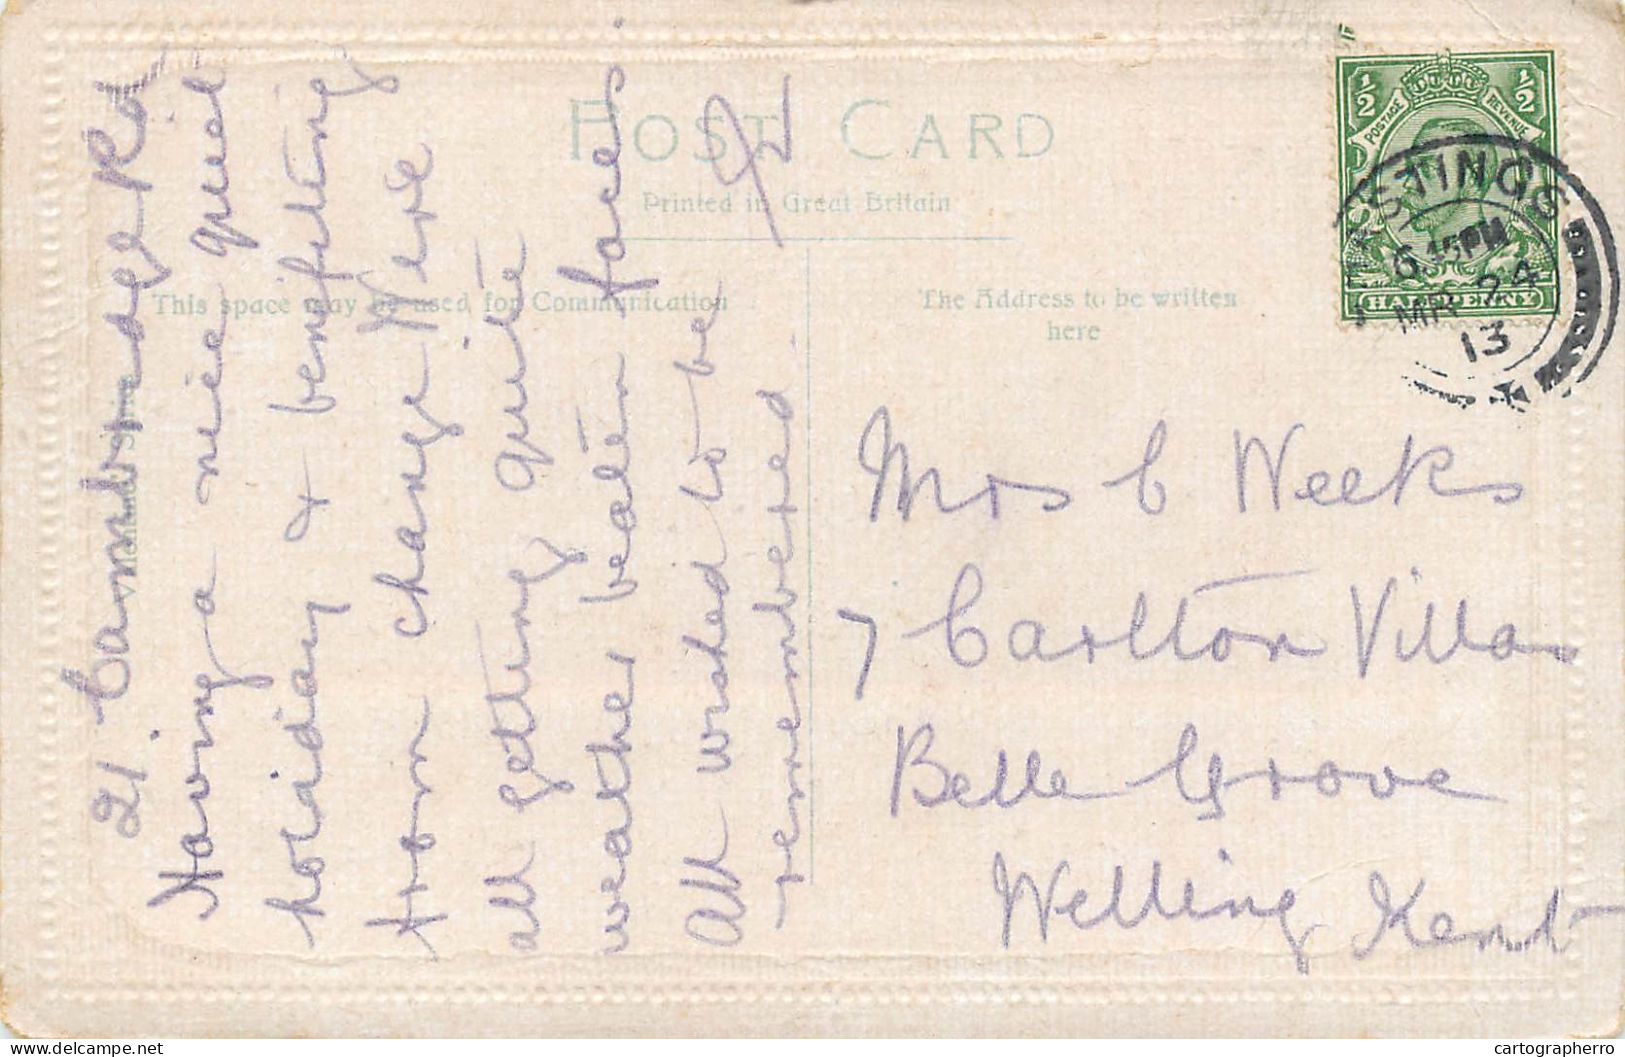 POST CARD
Printed in Great Britain
This space may be used for Communication
The Address to be written
here
½ ½
POSTAGE REVENUE
HALFPENNY
HASTINGS
6.45PM
MR 24
13
21. Cambridge Rd
Having a nice quiet
holiday & benifiting
from change Were
all getting quite
weather beaten faces.
All wished to be
remembered
Mrs C Weeks
7 Carlton Villas
Belle Grove
Welling Kent
delcampe.net
cartographerro